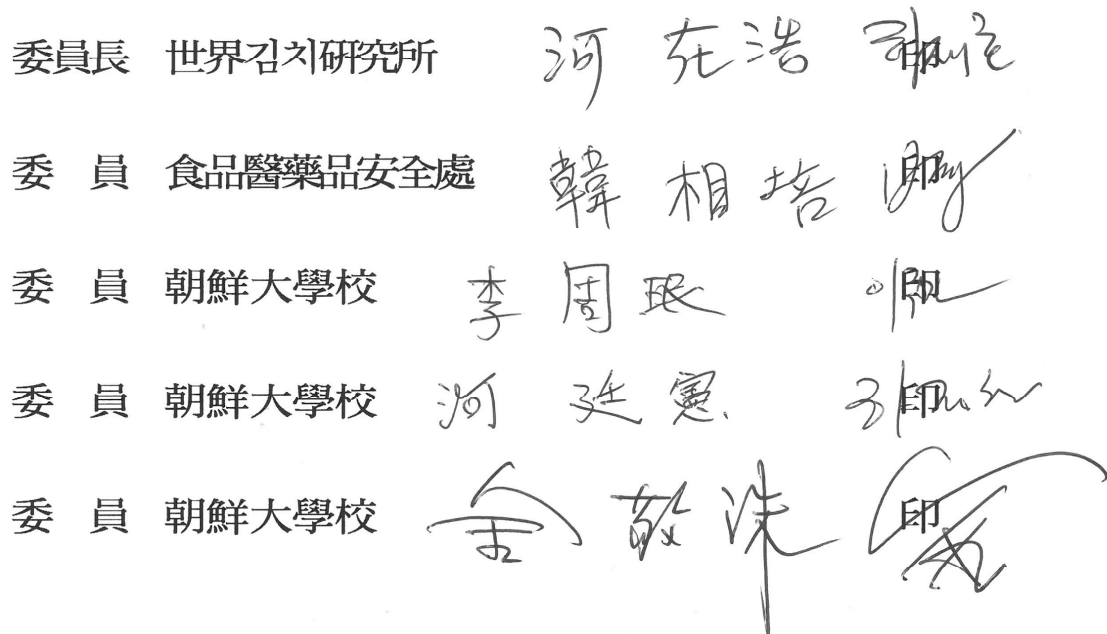 委員長 世界김치硏究所 河在浩 印
委員 食品醫藥品安全處 韓相培 印
委員 朝鮮大學校 李周珉 印
委員 朝鮮大學校 河廷憲 印
委員 朝鮮大學校 金敬洙 印